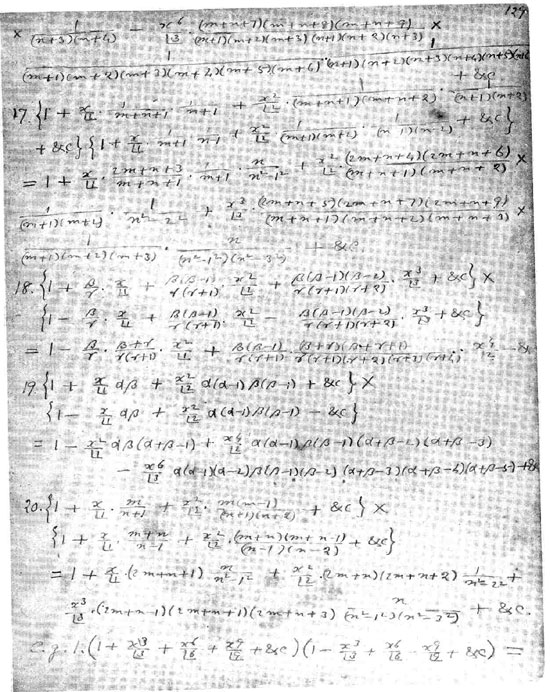 129
× 1/((n+3)(m+4)) − x⁶/⌊3 · (m+n+7)(m+n+8)(m+n+9)/((m+1)(m+2)(m+3)(n+1)(n+2)(n+3)) ×
1/((m+1)(m+2)(m+3)(m+4)(m+5)(m+6)) · 1/((n+1)(n+2)(n+3)(n+4)(n+5)(n+6)) + &c
17. {1 + x/⌊1 · 1/(m+n+1) · 1/(n+1) + x²/⌊2 · 1/((m+n+1)(m+n+2)) · 1/((n+1)(n+2))
+ &c} {1 + x/⌊1 · 1/(m+1) · 1/(n−1) + x²/⌊2 · 1/((m+1)(m+2)) · 1/((n−1)(n−2)) + &c}
= 1 + x/⌊1 · (2m+n+3)/(m+n+1) · 1/(m+1) · n/(n²−1²) + x²/⌊2 · (2m+n+4)(2m+n+6)/((m+n+1)(m+n+2)) ×
1/((m+1)(m+2)) · 1/(n²−2²) + x³/⌊3 · (2m+n+5)(2m+n+7)(2m+n+9)/((m+n+1)(m+n+2)(m+n+3)) ×
1/((m+1)(m+2)(m+3)) · n/((n²−1²)(n²−3²)) + &c
18. {1 + β/r · x/⌊1 + β(β−1)/(r(r+1)) · x²/⌊2 + β(β−1)(β−2)/(r(r+1)(r+2)) · x³/⌊3 + &c} ×
{1 − β/r · x/⌊1 + β(β−1)/(r(r+1)) · x²/⌊2 − β(β−1)(β−2)/(r(r+1)(r+2)) · x³/⌊3 + &c}
= 1 − β/r · (β+r)/(r(r+1)) · x²/⌊1 + β(β−1)/(r(r+1)) · (β+r)(β+r+1)/(r(r+1)(r+2)(r+3)) · x⁴/⌊2 − &c
19. {1 + x/⌊1 αβ + x²/⌊2 α(α−1)β(β−1) + &c} ×
{1 − x/⌊1 αβ + x²/⌊2 α(α−1)β(β−1) − &c}
= 1 − x²/⌊1 αβ(α+β−1) + x⁴/⌊2 α(α−1)β(β−1)(α+β−2)(α+β−3)
− x⁶/⌊3 α(α−1)(α−2)β(β−1)(β−2)(α+β−3)(α+β−4)(α+β−5) + &c
20. {1 + x/⌊1 · m/(n+1) + x²/⌊2 · m(m−1)/((n+1)(n+2)) + &c} ×
{1 + x/⌊1 · (m+n)/(n−1) + x²/⌊2 · (m+n)(m+n−1)/((n−1)(n−2)) + &c}
= 1 + x/⌊1 · (2m+n+1) n/(n²−1²) + x²/⌊2 · (2m+n)(2m+n+2) 1/(n²−2²) +
x³/⌊3 · (2m+n−1)(2m+n+1)(2m+n+3) n/((n²−1²)(n²−3²)) + &c.
e.g. 1. (1 + x³/⌊3 + x⁶/⌊6 + x⁹/⌊9 + &c)(1 − x³/⌊3 + x⁶/⌊6 − x⁹/⌊9 + &c) =